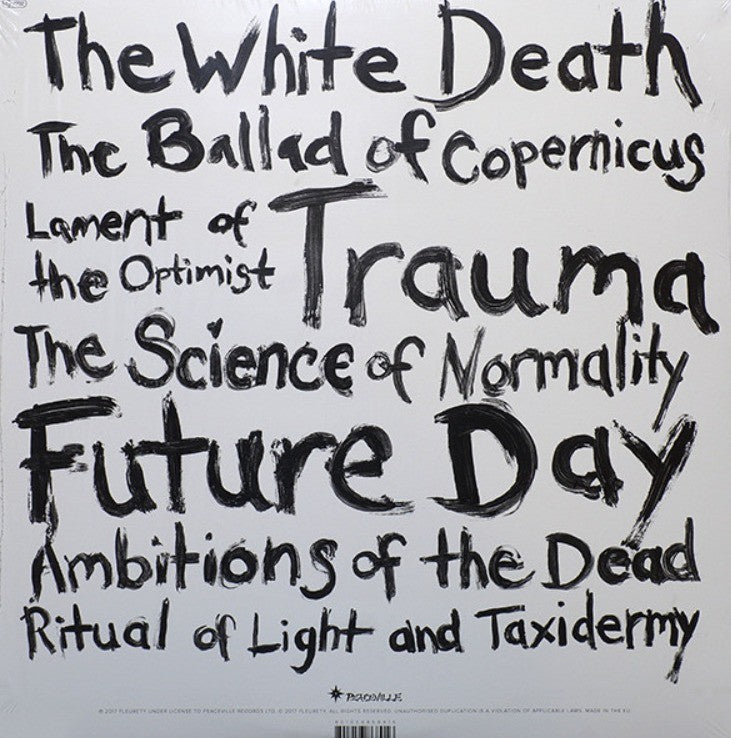 The White Death
The Ballad of Copernicus
Lament of
the Optimist
Trauma
The Science of Normality
Future Day
Ambitions of the Dead
Ritual of Light and Taxidermy
PEACEVILLE
© 2017 FLEURETY UNDER LICENSE TO PEACEVILLE RECORDS LTD. © 2017 FLEURETY. ALL RIGHTS RESERVED. UNAUTHORISED DUPLICATION IS A VIOLATION OF APPLICABLE LAWS. MADE IN THE EU.